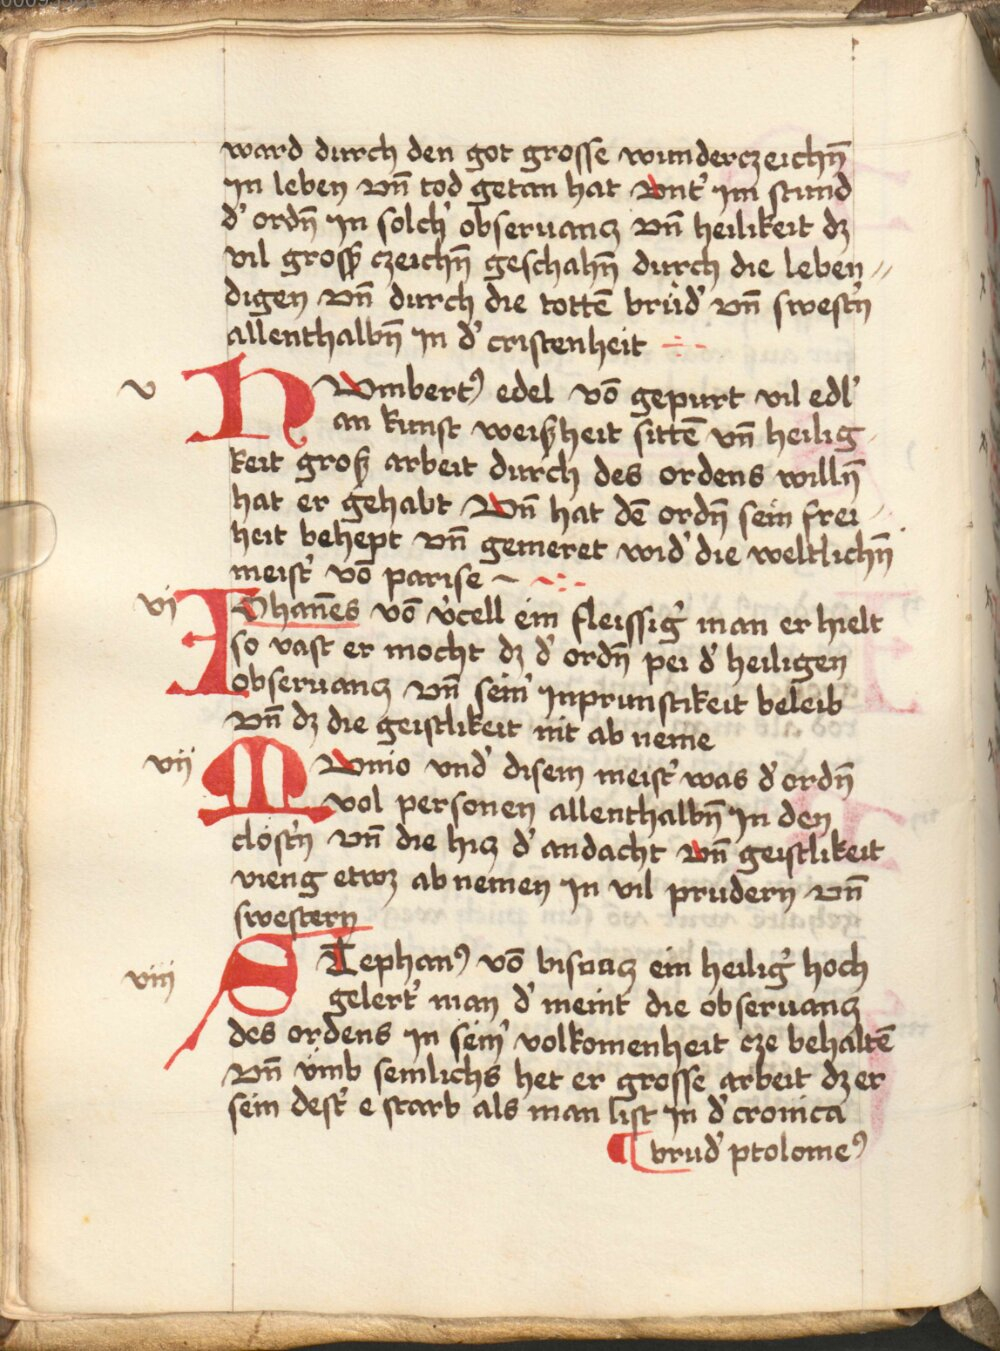 ward durch den got grosse wunderczeichn̄
in leben vn̄ tod getan hat vnt' im stund
d' ordn̄ in solch' obseruancz vn̄ heilikeit dz
vil gross' czeichn̄ geschahn̄ durch die leben
digen vn̄ durch die tottē brüd' vn̄ swest'n
allenthalbn̄ in d' cristenheit
v HVmbert9 edel vō gepurt vil edl'
an kunst weisheit sittē vn̄ heilig
keit gros arbeit durch des ordens willn̄
hat er gehabt Vn̄ hat dē ordn̄ sein frei
heit behept vn̄ gemeret wid' die weltlichn̄
meist' vō parise
vi IOhan̄es vō v'cell ein fleissig' man er hielt
so vast er mocht dz d' ordn̄ pei d' heiligen
obseruancz vn̄ sein' inprunstikeit beleib
vn̄ dz die geistlikeit nit ab neme
vii MVnio vnd' disem meist' was d' ordn̄
vol personen allenthalbn̄ in den
clost'n vn̄ die hicz d' andacht vn̄ geistlikeit
vieng etwz ab nemen in vil prudern vn̄
swestern
viii STephan9 vō ein heilig' hoch
gelert' man d' meint die obseruancz
des ordens in sein' volkomenheit cze behaltē
vn̄ vmb semlichs het er grosse arbeit dz er
sein dest' e starb als man list in d' cronica
¶ brud' ptolome9